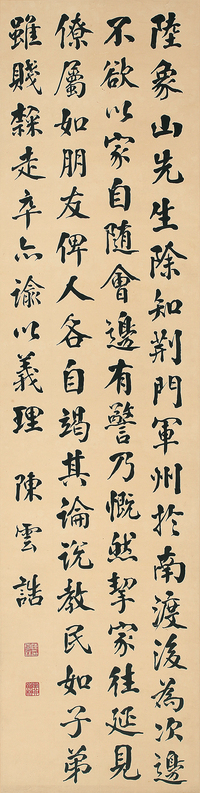 陸象山先生除知荆門軍州於南渡後為次邊
不欲以家自随會邊有警乃慨然挈家往延見
僚屬如朋友俾人各自竭其論説教民如子弟
雖賤隸走卒亦諭以義理　陳雲誥